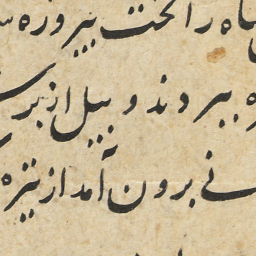 اه را تخت پیروزه
ببردند و پیل از بر
نی برون آمد از تیره